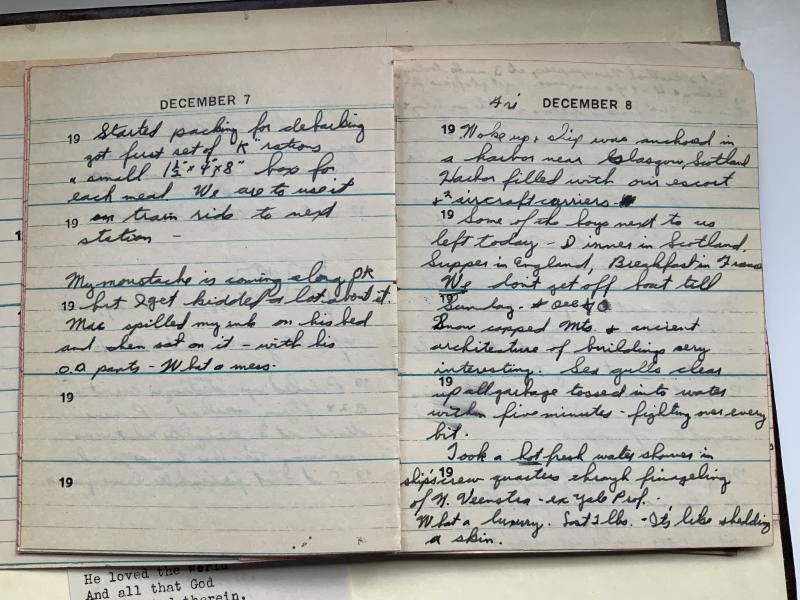 DECEMBER 7
19 Started packing for debarking
got first set of "K" rations
a small 1½" x 4" x 8" box for
each meal. We are to use it
19 on train ride to next
station -
My moustache is coming along OK
19 but I get kidded a lot about it.
Mac spilled my ink on his bed
and then sat on it - with his
O.D. pants - What a mess.
19
19
Fri DECEMBER 8
19 Woke up & ship was anchored in
a harbor near Glasgow, Scotland
Harbor filled with our escort
+ 2 aircraft carriers
19 Some of the boys next to us
left today - Dinner in Scotland.
Supper in England, Breakfast in France
We don't get off boat till
19 Sunday.
Snow capped Mts. & ancient
architecture of buildings very
interesting. Sea gulls clear
19 up all garbage tossed into water
within five minutes - fighting over every
bit.
Took a hot fresh water shower in
19 ship's crew quarters through finageling
of N. Veenstra - ex Yale Prof.
What a luxury. Lost 2 lbs. - It's like shedding
a skin.
He loved the world
And all that God
therein,